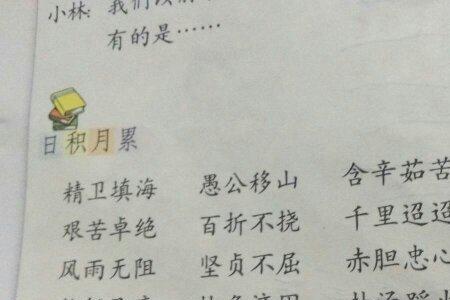 小林：我们
有的是……
日积月累
精卫填海 愚公移山 含辛茹苦
艰苦卓绝 百折不挠 千里迢迢
风雨无阻 坚贞不屈 赤胆忠心